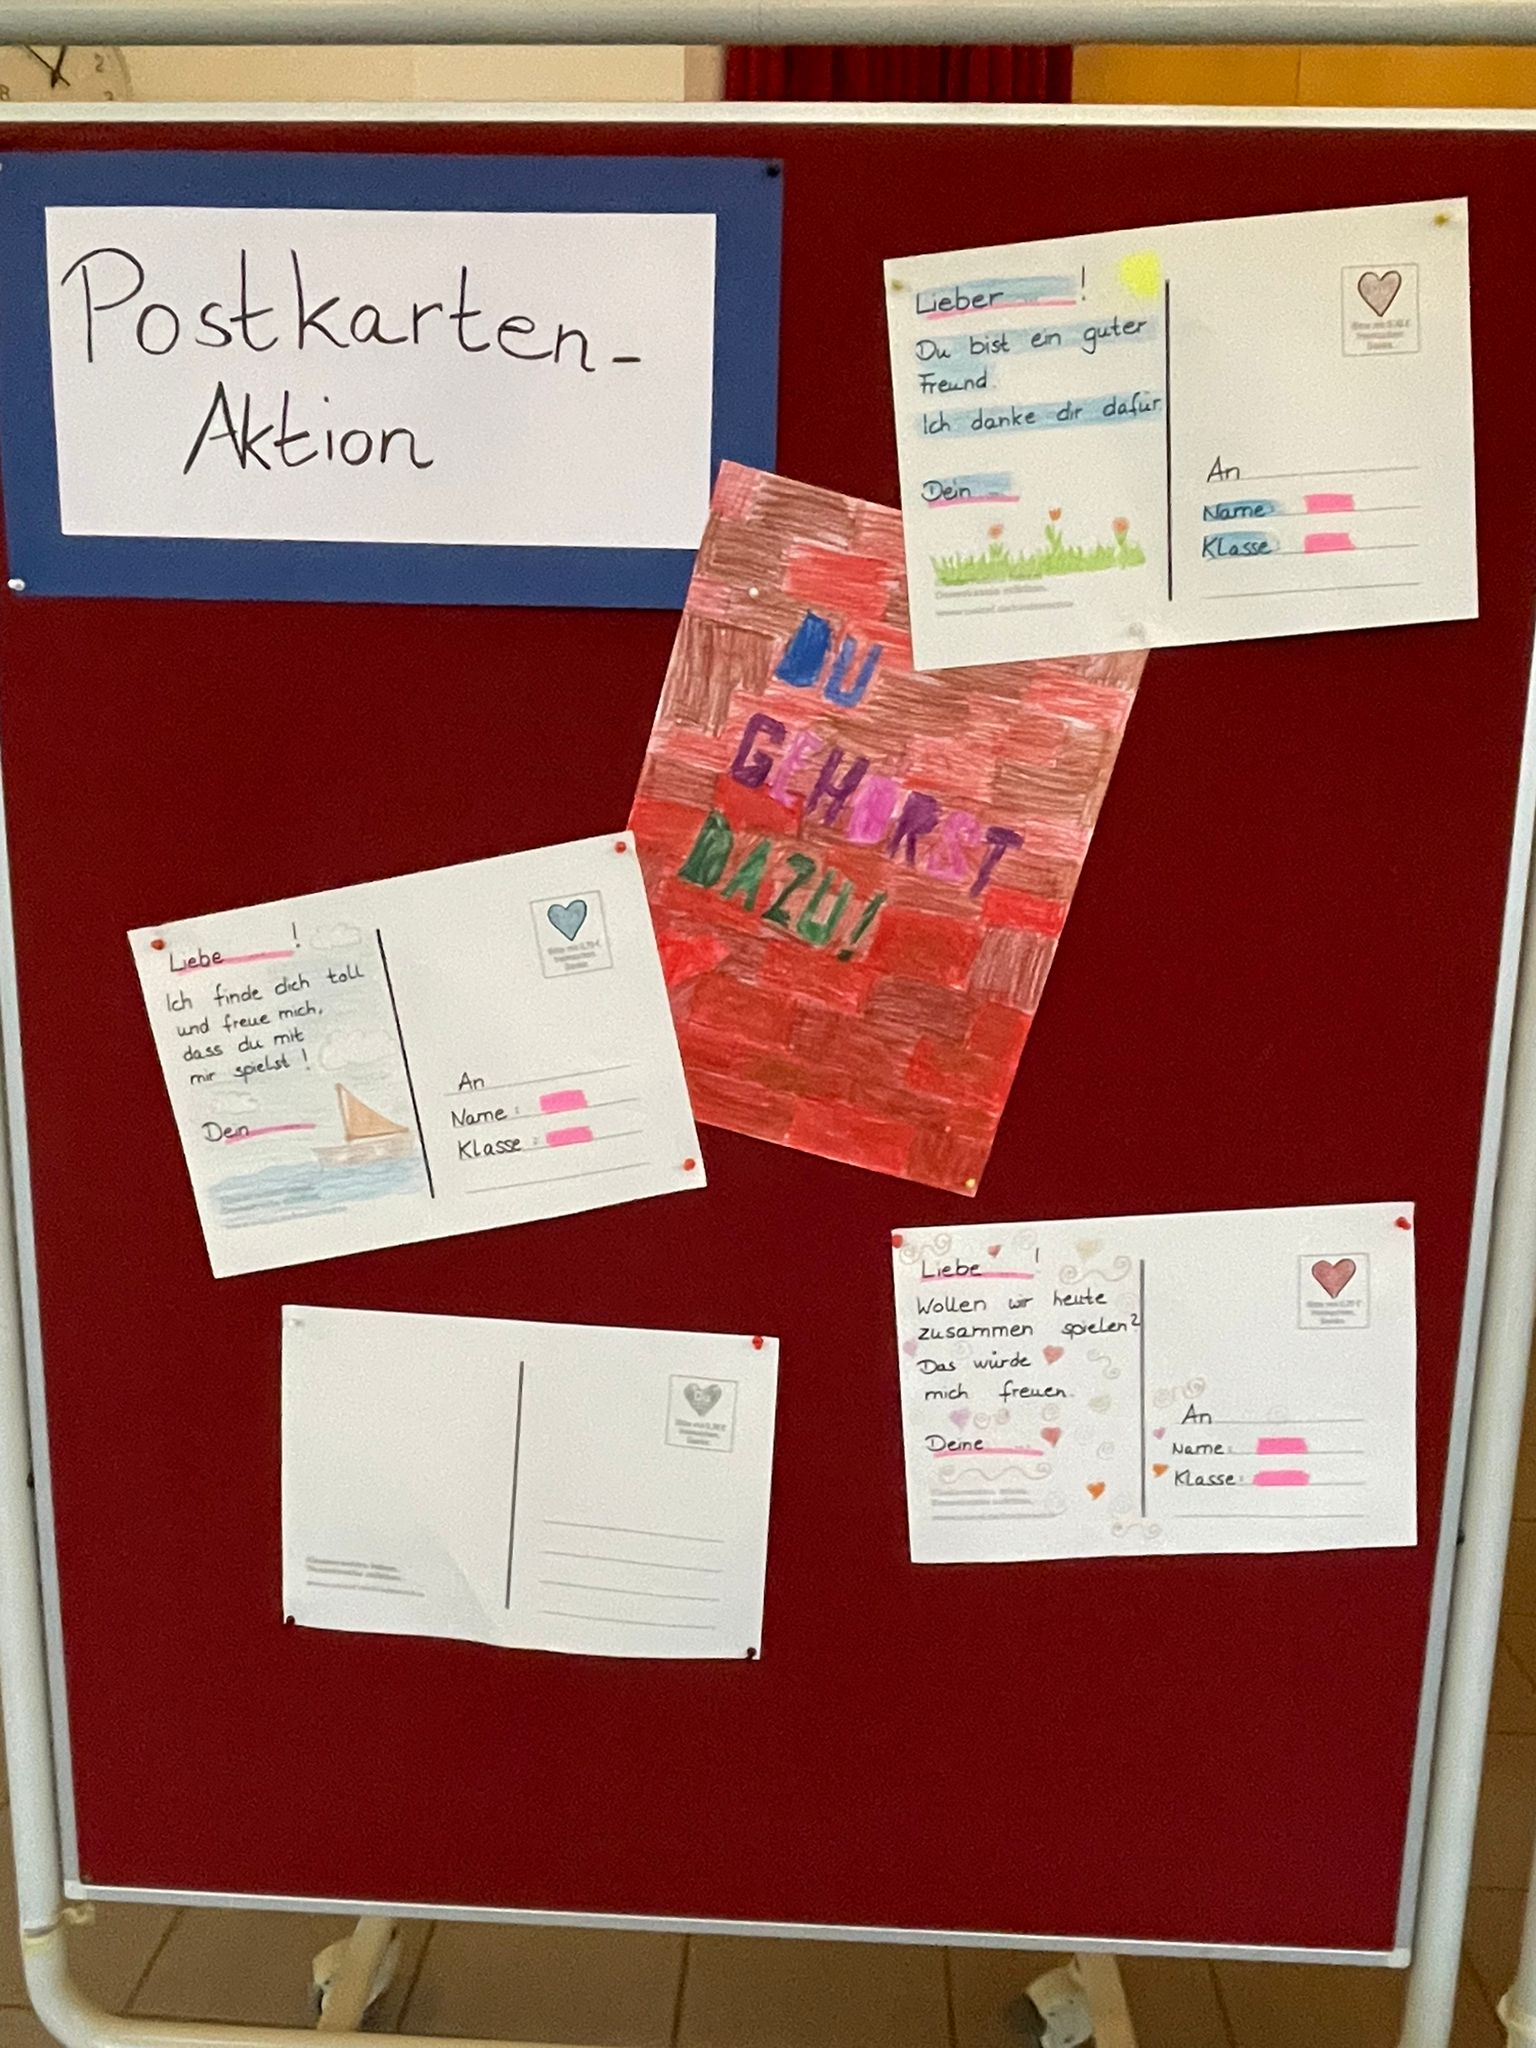 Postkarten-
Aktion
Lieber !
Du bist ein guter
Freund.
Ich danke dir dafür.
Dein
An
Name
Klasse
DU
GEHÖRST
DAZU!
Liebe !
Ich finde dich toll
und freue mich,
dass du mit
mir spielst!
Dein
An
Name:
Klasse:
Liebe !
Wollen wir heute
zusammen spielen?
Das würde
mich freuen.
Deine
An
Name:
Klasse:
2